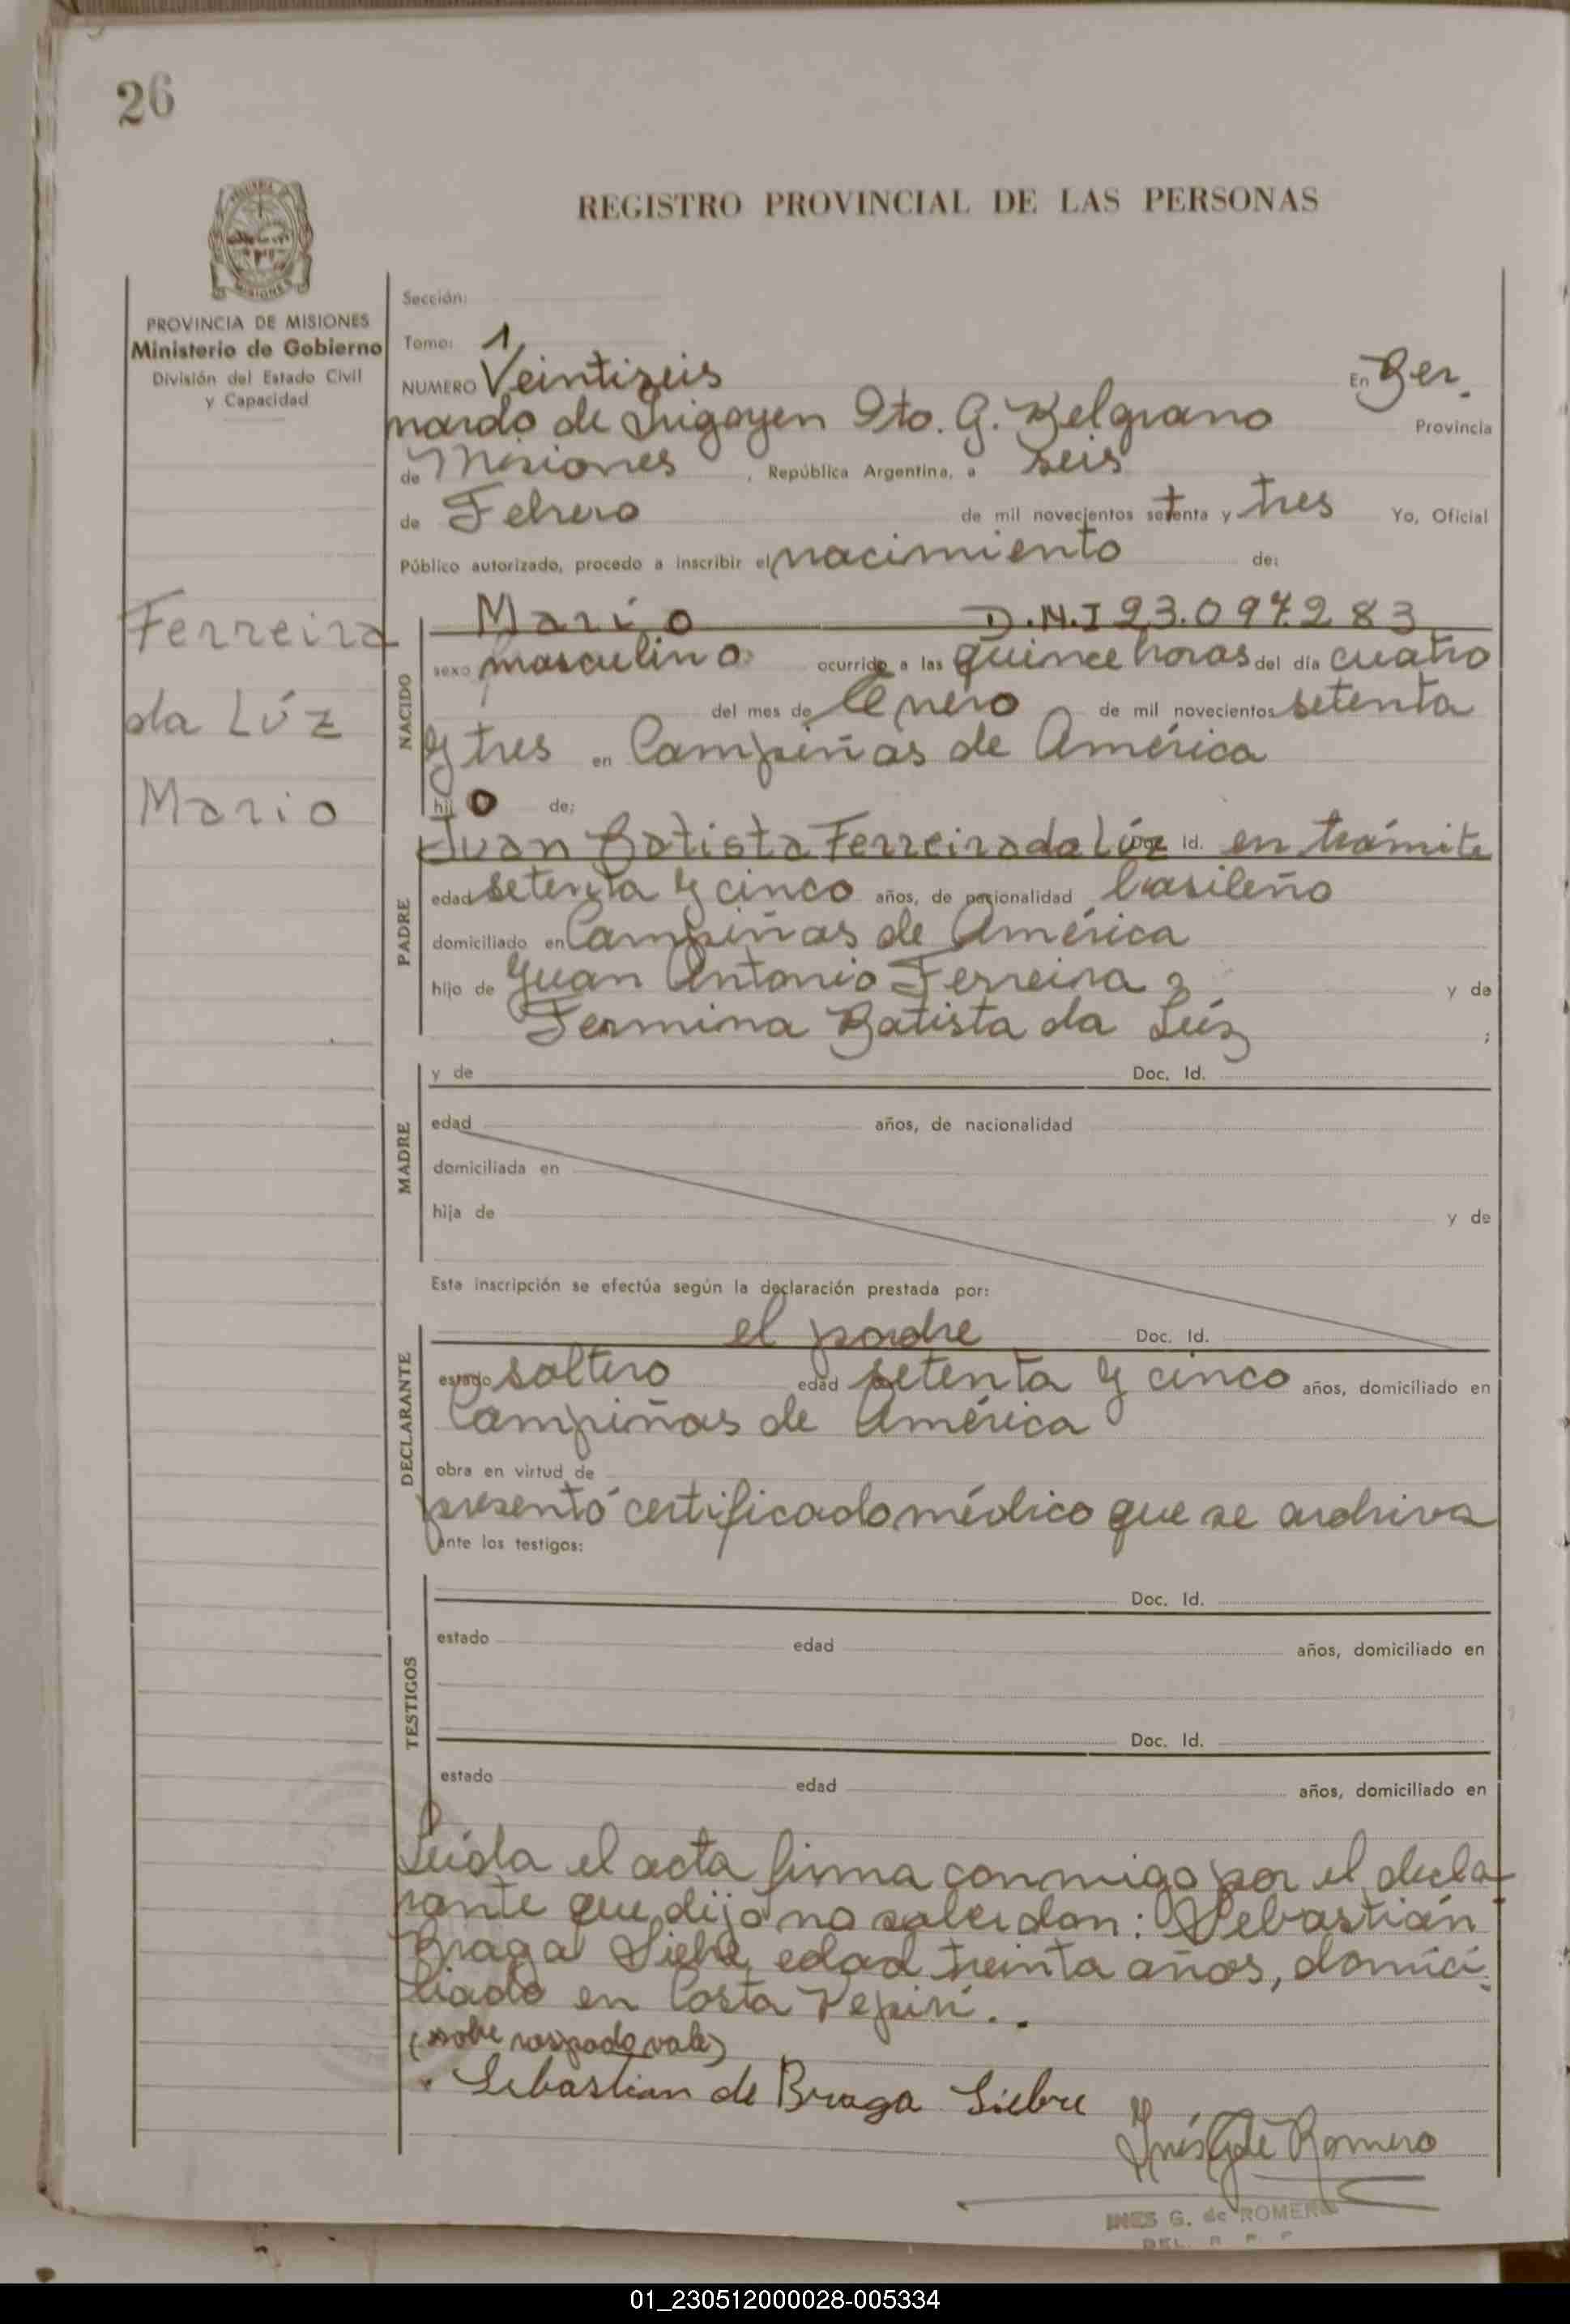 26
REGISTRO PROVINCIAL DE LAS PERSONAS
PROVINCIA DE MISIONES
Ministerio de Gobierno
División del Estado Civil
y Capacidad
Ferreira
da Lúz
Mario
Sección:
Tomo: 1
NUMERO Veintiseis En Ber.
nardo de Irigoyen Dto. G. Belgrano Provincia
de Misiones, República Argentina, a seis
de Febrero de mil novecientos setenta y tres Yo, Oficial
Público autorizado, procedo a inscribir el nacimiento de:
NACIDO
Mario D.N.I 23.097.283
sexo masculino ocurrido a las quince horas del día cuatro
del mes de Enero de mil novecientos setenta
y tres en Campiñas de América
hijo de:
PADRE
Juan Batista Ferreira da Lúz Id. en trámite
edad setenta y cinco años, de nacionalidad brasileño
domiciliado en Campiñas de América
hijo de Juan Antonio Ferreira y de
Fermina Batista da Lúz ;
MADRE
y de Doc. Id.
edad años, de nacionalidad
domiciliada en
hija de y de
Esta inscripción se efectúa según la declaración prestada por:
DECLARANTE
el padre Doc. Id.
estado soltero edad setenta y cinco años, domiciliado en
Campiñas de América
obra en virtud de
presentó certificado médico que se archiva
ante los testigos:
TESTIGOS
Doc. Id.
estado edad años, domiciliado en
Doc. Id.
estado edad años, domiciliado en
Leída el acta firma conmigo por el decla-
rante que dijo no saber don: Sebastián
Braga Siebre edad treinta años, domici-
liado en Costa Pepirí..
(sobre raspado vale)
Sebastian de Braga Siebre
Inés G de Romero
INES G. de ROMERO
DEL. R P P
01_230512000028-005334